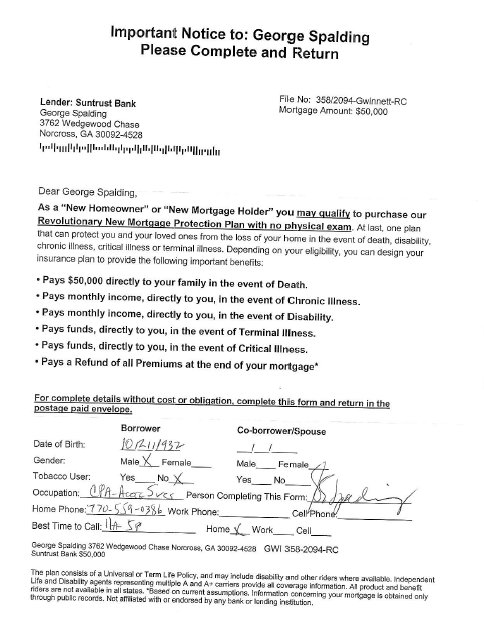 Important Notice to: George Spalding
Please Complete and Return
File No: 358/2094-Gwinnett-RC
Mortgage Amount: $50,000
Lender: Suntrust Bank
George Spalding
3762 Wedgewood Chase
Norcross, GA 30092-4528
Dear George Spalding,
As a "New Homeowner" or "New Mortgage Holder" you may qualify to purchase our
Revolutionary New Mortgage Protection Plan with no physical exam. At last, one plan
that can protect you and your loved ones from the loss of your home in the event of death, disability,
chronic illness, critical illness or terminal illness. Depending on your eligibility, you can design your
insurance plan to provide the following important benefits:
• Pays $50,000 directly to your family in the event of Death.
• Pays monthly income, directly to you, in the event of Chronic Illness.
• Pays monthly income, directly to you, in the event of Disability.
• Pays funds, directly to you, in the event of Terminal Illness.
• Pays funds, directly to you, in the event of Critical Illness.
• Pays a Refund of all Premiums at the end of your mortgage*
For complete details without cost or obligation, complete this form and return in the
postage paid envelope.
Borrower Co-borrower/Spouse
Date of Birth: 10/21/1932 __/__/__
Gender: Male X Female___ Male___ Female___
Tobacco User: Yes___ No X Yes___ No___
Occupation: CPA-Acct Svcs Person Completing This Form: Spalding
Home Phone: 770-559-0386 Work Phone:________ Cell Phone:
Best Time to Call: 11A-5P Home X Work___ Cell___
George Spalding 3762 Wedgewood Chase Norcross, GA 30092-4528 GWI 358-2094-RC
Suntrust Bank $50,000
The plan consists of a Universal or Term Life Policy, and may include disability and other riders where available. Independent
Life and Disability agents representing multiple A and A+ carriers provide all coverage information. All product and benefit
riders are not available in all states. *Based on current assumptions. Information concerning your mortgage is obtained only
through public records. Not affiliated with or endorsed by any bank or lending institution.